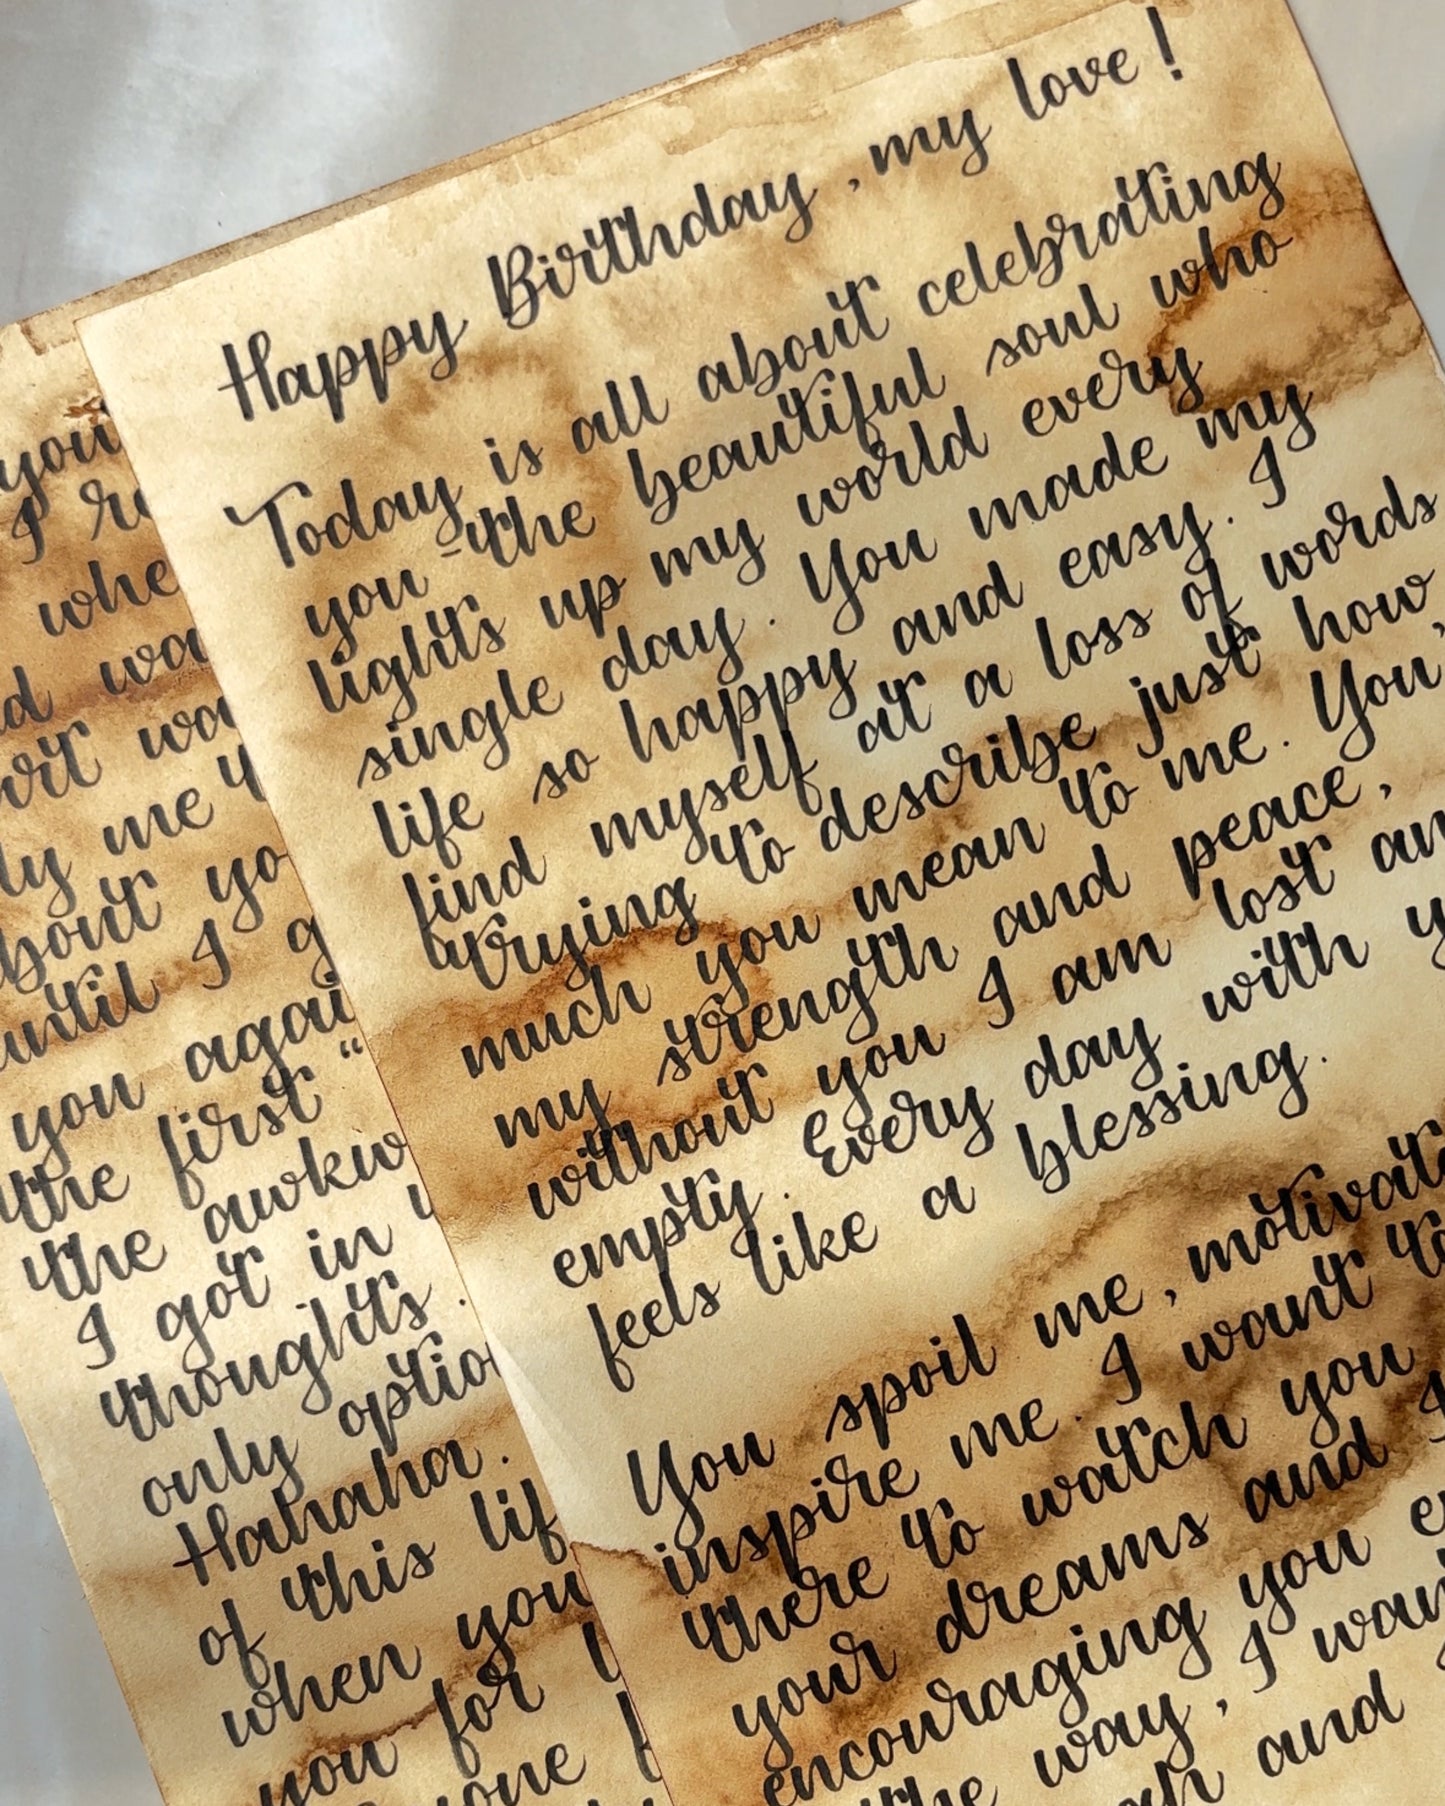 Happy Birthday, my love!
Today is all about celebrating
you - the beautiful soul who
lights up my world every
single day. You made my
life so happy and easy. I
find myself at a loss of words
trying to describe just how
much you mean to me. You,
my strength and peace,
without you I am lost an
empty. Every day with y
feels like a blessing.
You spoil me, motivat
inspire me. I want to
there to watch you
your dreams and I
encouraging you e
the way, I wan
and
you
I re
whe
d wa
wa
ly me t
bout yo
until I g
you agai
the first "
the awkw
I got in
thoughts.
only optio
Hahaha.
of this lif
when you
you for l
one